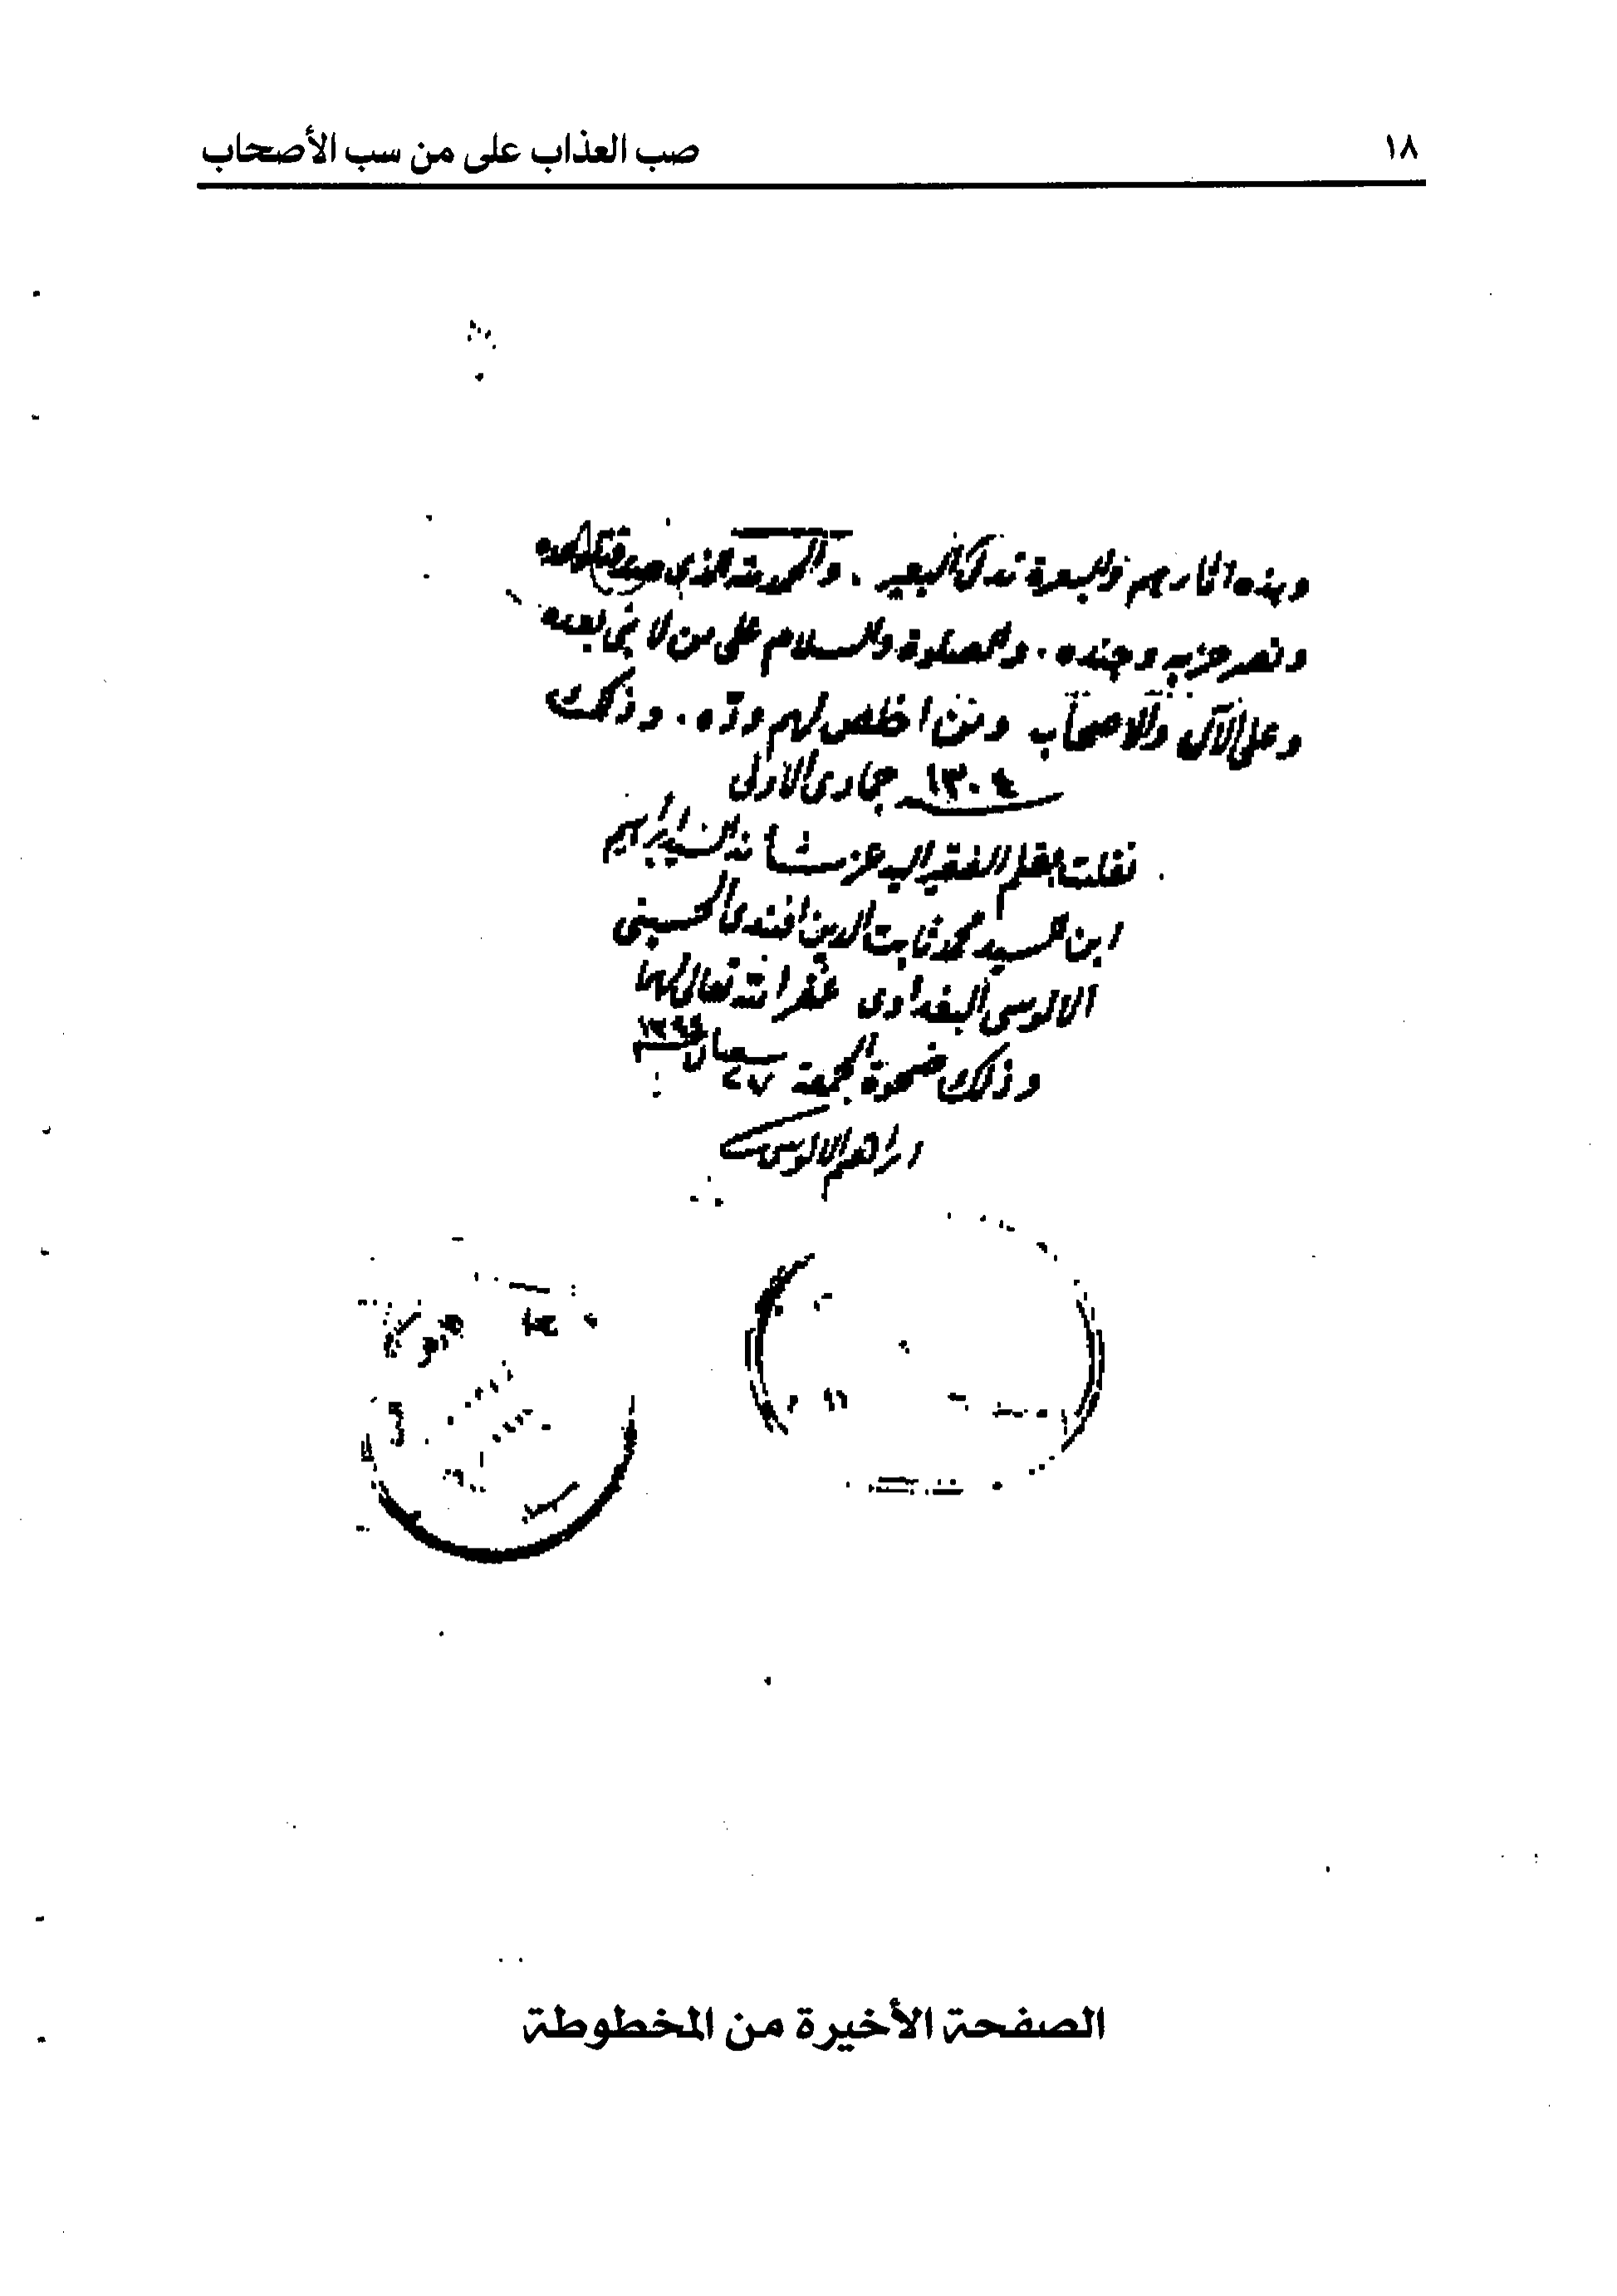 ١٨
صب العذاب على من سب الأصحاب
وهذه اثارهم والبعرة تدل على البعير . والحمد لله الذي صدق وعده
ونصر حزبه وجنده . والصلاة والسلام على من لا نبي بعده
وعلى الآل والاصحاب ومن اخلص لهم ودّه . وذلك
١٣٠٤ جمادى الاولى
نقلت بقلم الفقير اليه عز شانه السيد ابراهيم
ابن السيد محمد ثابت الدين افندي الحسيني
الالوسي البغدادي غفر الله تعالى لهما
وذلك ضحوة الجمعة ٢٧ شعبان
ابراهيم الالوسي
الصفحة الأخيرة من المخطوطة